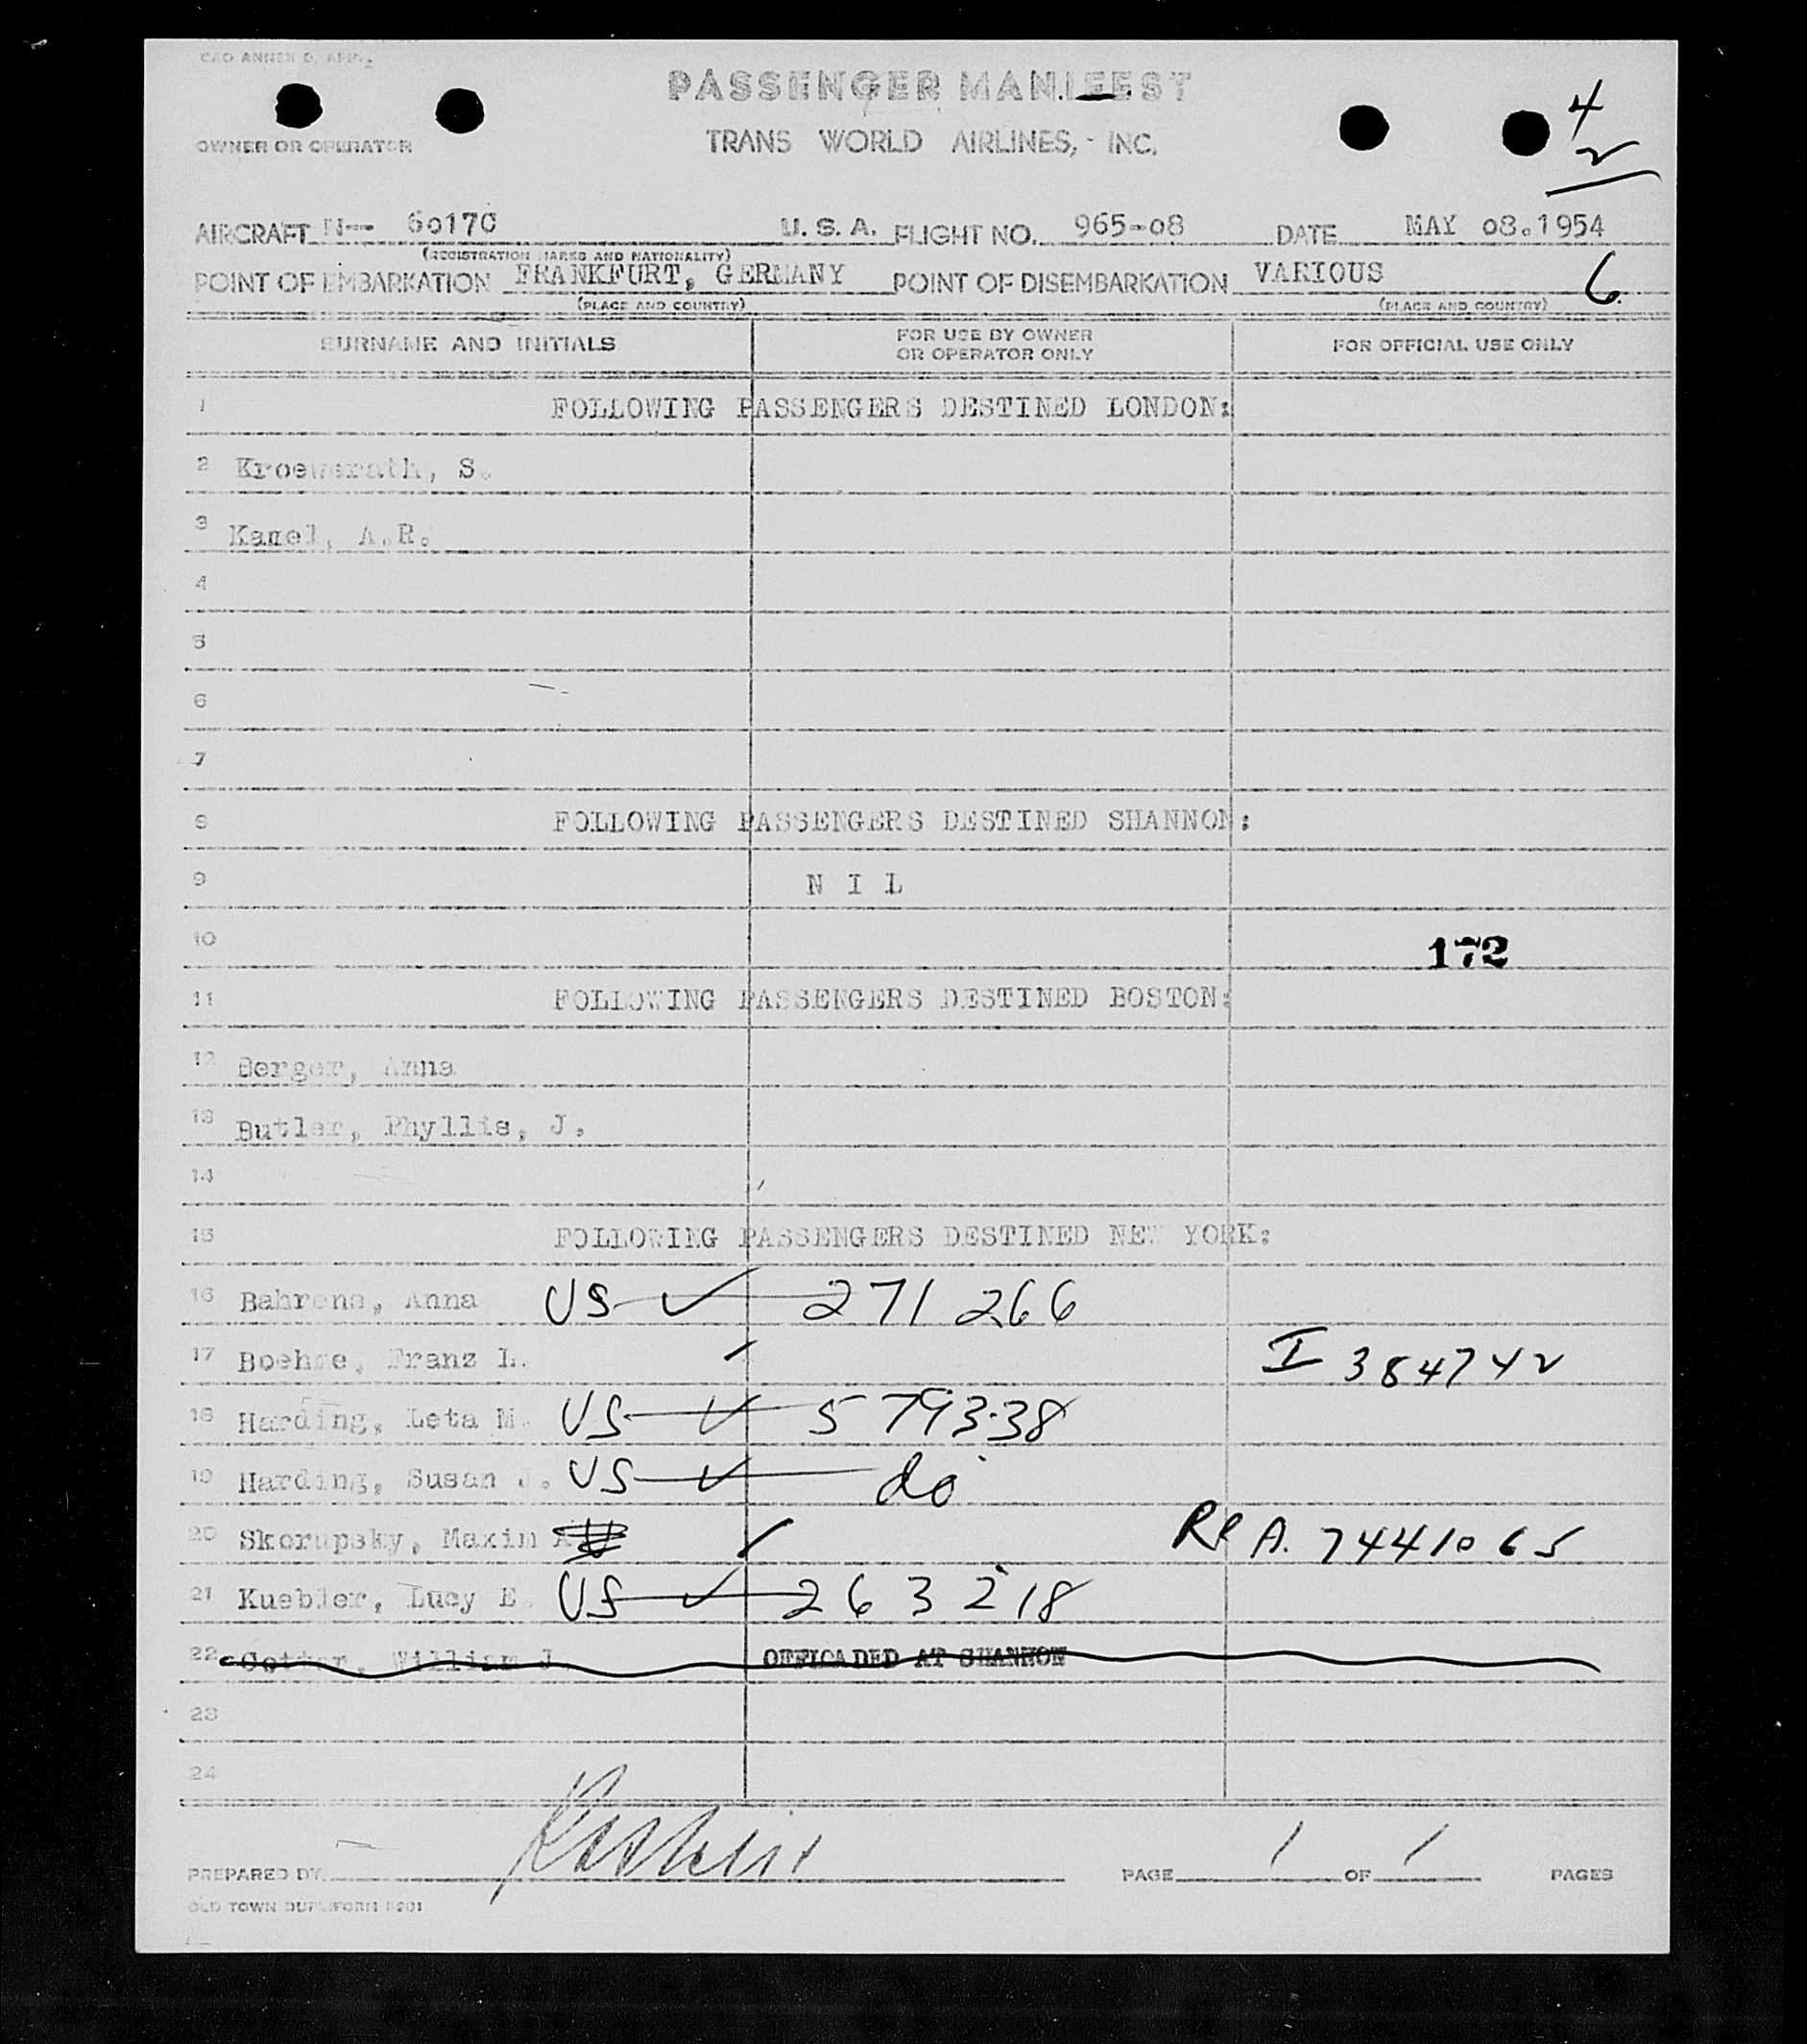 CAO ANNEX D,
PASSENGER MANIFEST
4
2
OWNER OR OPERATOR
TRANS WORLD AIRLINES, - INC.
AIRCRAFT N-- 6017C U. S. A. FLIGHT NO. 965-08 DATE MAY 08.1954
(REGISTRATION MARKS AND NATIONALITY)
POINT OF EMBARKATION FRANKFURT, GERMANY POINT OF DISEMBARKATION VARIOUS 6
(PLACE AND COUNTRY) (PLACE AND COUNTRY)
SURNAME AND INITIALS FOR USE BY OWNER OR OPERATOR ONLY FOR OFFICIAL USE ONLY
1 FOLLOWING PASSENGERS DESTINED LONDON:
2 Kroewerath, S.
3 Kanel, A.R.
4
5
6
7
8 FOLLOWING PASSENGERS DESTINED SHANNON:
9 N I L
10 172
11 FOLLOWING PASSENGERS DESTINED BOSTON:
12 Berger, Anna
13 Butler, Phyllis, J.
14
15 FOLLOWING PASSENGERS DESTINED NEW YORK:
16 Bahrens, Anna US ✓ 271 266
17 Boehme, Franz L. I 384742
18 Harding, Leta M. US ✓ 579338
19 Harding, Susan J. US ✓ do
20 Skorupsky, Maxim A RP A. 7441065
21 Kuebler, Lucy E. US ✓ 263218
22 Cotter, William J. OFFLOADED AT SHANNON
23
24
PREPARED BY PAGE 1 OF 1 PAGES
OLD TOWN DUPLIFORM